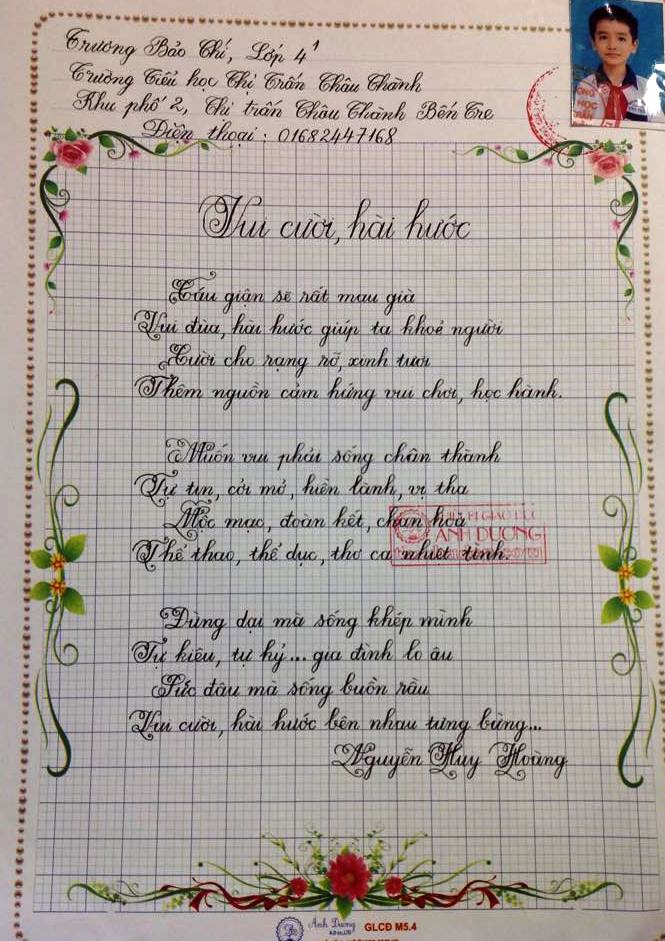 Trương Bảo Chí, Lớp 4¹
Trường Tiểu học Thị Trấn Châu Thành
Khu phố 2, Thị trấn Châu Thành Bến Tre
Điện thoại: 01682447168
Vui cười, hài hước
Cáu giận sẽ rất mau già
Vui đùa, hài hước giúp ta khoẻ người
Cười cho rạng rỡ, xinh tươi
Thêm nguồn cảm hứng vui chơi, học hành.
Muốn vui phải sống chân thành
Tự tin, cởi mở, hiền lành, vị tha
Mộc mạc, đoàn kết, chan hoà
Thể thao, thể dục, thơ ca nhiệt tình.
Đừng dại mà sống khép mình
Tự kiêu, tự kỷ... gia đình lo âu
Sức đâu mà sống buồn rầu
Vui cười, hài hước bên nhau tưng bừng...
Nguyễn Huy Hoàng
ÁNH DƯƠNG
Ánh Dương
GLCĐ M5.4